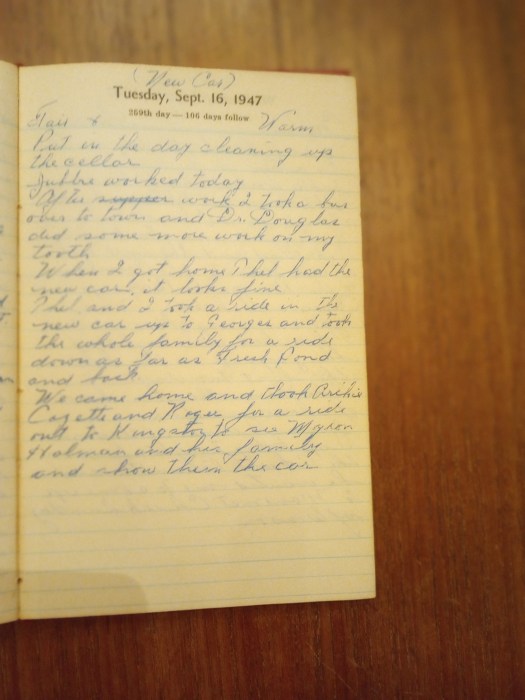 (New Car)
Tuesday, Sept. 16, 1947
259th day — 106 days follow
Fair & Warm
Put in the day cleaning up
the cellar
worked today
After supper work I took a bus
over to town and Dr. Douglas
did some more work on my
tooth
When I got home Thel had the
new car, it looks fine
Thel and I took a ride in the
new car up to Georges and took
the whole family for a ride
down as far as Fresh Pond
and back
We came home and thook
Cozette and Roger for a ride
out to Kingston to see Myron
Holman and her family
and show them the car